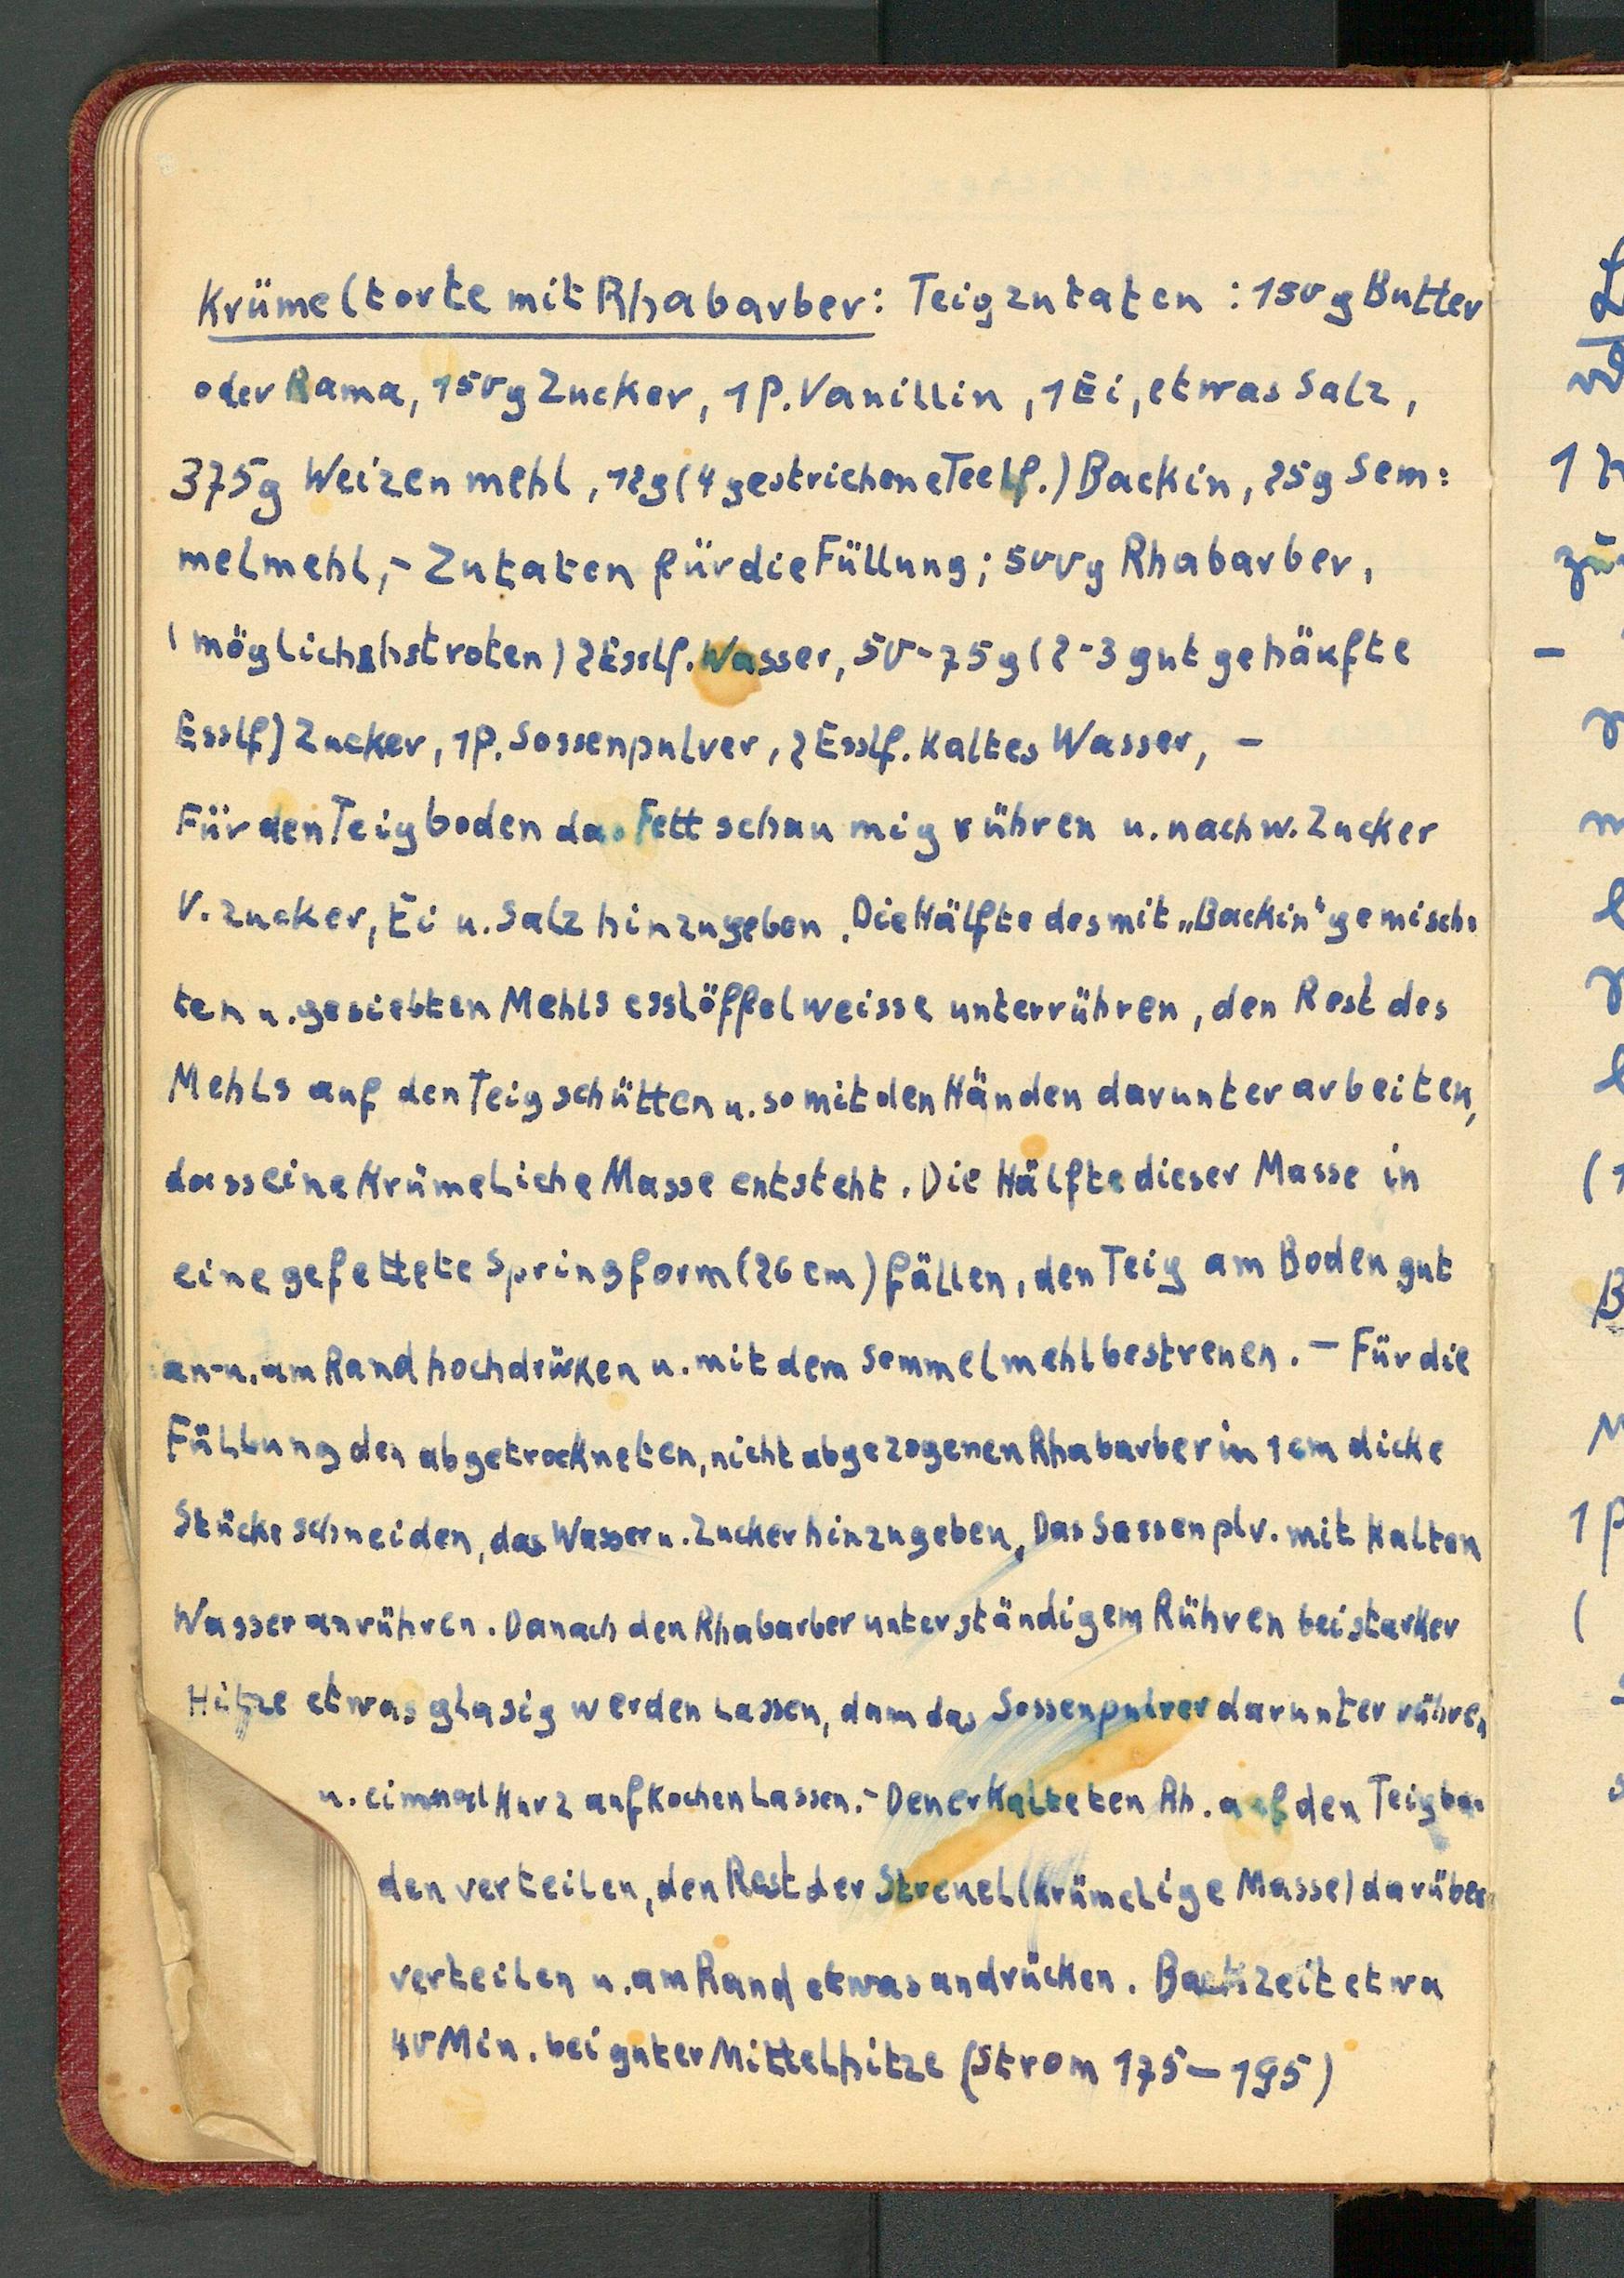 Krümeltorte mit Rhabarber: Teigzutaten : 150 g Butter
oder Rama, 150 g Zucker, 1 P. Vanillin, 1 Ei, etwas Salz,
375 g Weizenmehl, 12 g (4 gestrichene Teelf.) Backin, 25 g Sem:
melmehl,- Zutaten für die Füllung; 500 g Rhabarber,
(möglichshst roten) 2 Esslf. Wasser, 50-75 g (2-3 gut gehäufte
Esslf) Zucker, 1 P. Sossenpulver, 2 Esslf. Kaltes Wasser, -
Für den Teigboden das Fett schaumig rühren u. nach w. Zucker
V. zucker, Ei u. Salz hinzugeben. Die Hälfte des mit „Backin" gemisch:
ten u. gesiebten Mehls esslöffelweisse unterrühren, den Rest des
Mehls auf den Teig schütten u. so mit den Händen darunter arbeiten,
dass eine Krümeliche Masse entsteht. Die Hälfte dieser Masse in
eine gefettete Springform (26 cm) füllen, den Teig am Boden gut
an- u. am Rand hochdrüken u. mit dem Semmelmehl bestreuen. - Für die
Füllung den abgetrockneten, nicht abgezogenen Rhabarber in 1 cm dicke
Stücke schneiden, das Wasser u. Zucker hinzugeben, Das Sossenplv. mit Kalten
Wasser anrühren. Danach den Rhabarber unter ständigem Rühren bei starker
Hitze etwas glasig werden lassen, dann das Sossenpulver darunter rühren
u. einmal Kurz aufkochen lassen.- Den erkalteten Rh. auf den Teigbo:
den verteilen, den Rest der Streuel (Krümelige Masse) darüber
verteilen u. am Rand etwas andrücken. Backzeit etwa
40 Min. bei guter Mittelhitze (Strom 175 - 195)